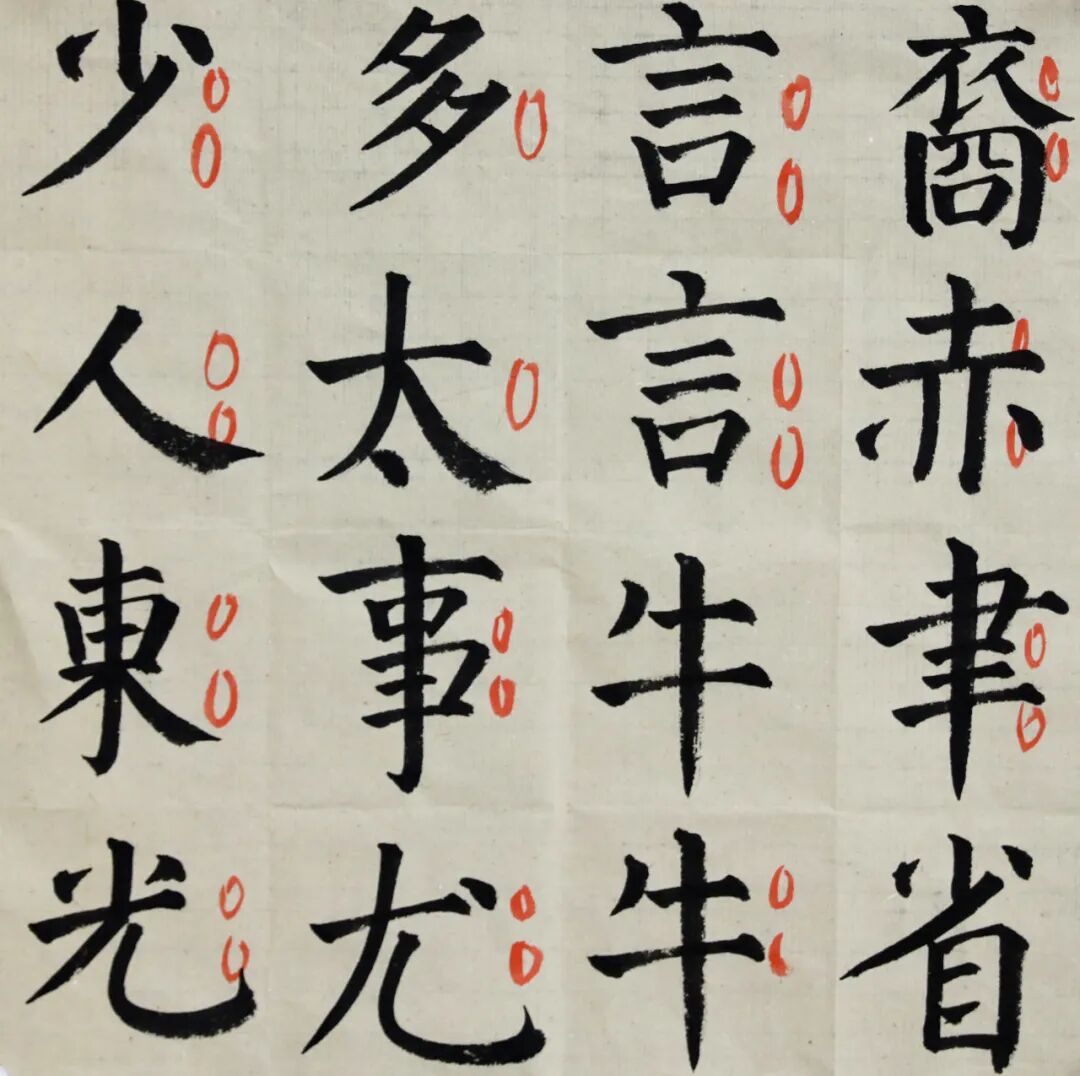 裔赤聿省
言言牛牛
多太事尤
少人東光